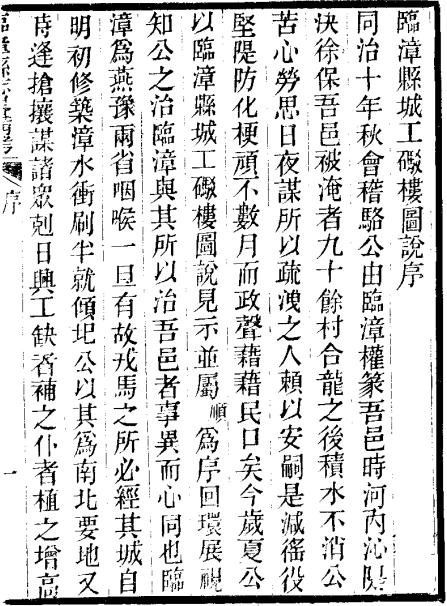 臨漳縣城工礮樓圖說序
同治十年秋會稽駱公由臨漳權篆吾邑時河內沁隄
決徐保吾邑被淹者九十餘村合龍之後積水不消公
苦心勞思日夜謀所以疏洩之人賴以安嗣是減徭役
堅隄防化梗頑不數月而政聲藉藉民口矣今歲夏公
以臨漳縣城工礮樓圖說見示並屬順爲序回環展視
知公之治臨漳與其所以治吾邑者事異而心同也臨
漳爲燕豫兩省咽喉一旦有故戎馬之所必經其城自
明初修築漳水衝刷半就傾圯公以其爲南北要地又
時逢搶攘謀諸眾剋日興工缺者補之仆者植之增高
序
一